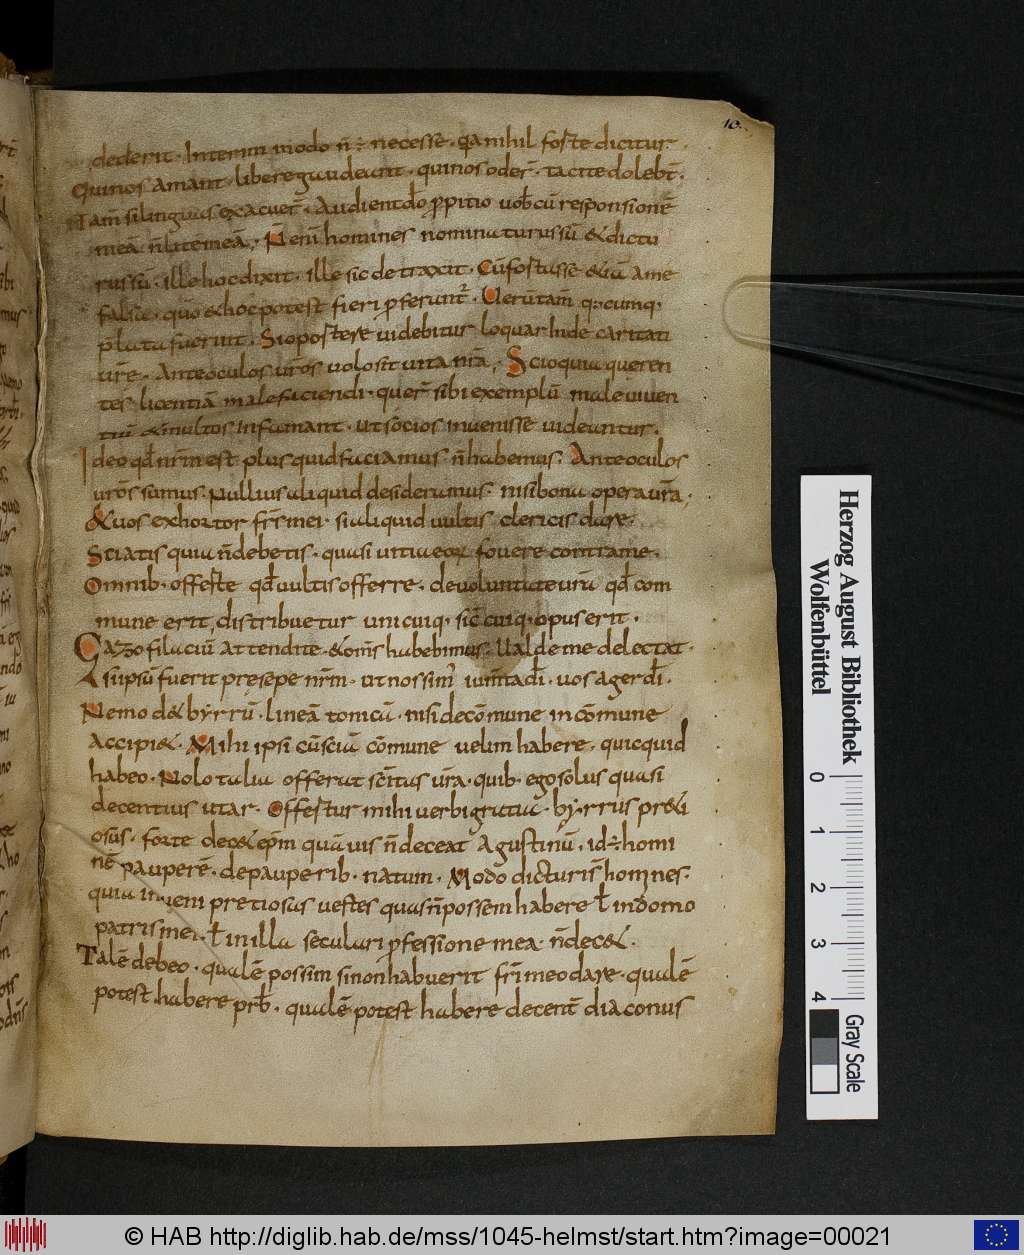 10.
dederit. Interim modo n̄ ÷ necesse. qa nihil fošte dicitur.
Quinos amant. libere gaudeant. qui nos oder̄. tacite doleb̄t.
Nam si linguas exacuer̄t. Audient dō p̱pitio uob̄cū responsionē
meā. n̄ litē meā. Nenī homines nominaturus sū & dictu
rus sū. ille hoc dixit. ille sic detraxit. Cū foštusse & iā A me
falsa. quō & hoc potest fieri p̱ferunt̄. Uerūtam̄ q:cumq;
p̱lata fuerint. Si oportere uidebitur loquar inde caritati
ur̄e. Ante oculos ur̄os uolo sit uita nr̄a. Scio quia queren
tes licentiā male faciendi. quer̄ sibi exemplū male uiuen
tiū & multos infamant. ut socios inuenisse uideantur.
Ideo qd̄ nr̄m est plus quid faciamus n̄ habemus. Ante oculos
ur̄os sumus. Nullius aliquid desideramus. nisi bona opera ur̄a.
& uos exhortor fr̄s mei. si aliquid uultis clericis dare.
Sciatis quia n̄ debetis. quasi uitia eoꝝ fouere contra me.
Omnib. offerte qd̄ uultis offerre. de uoluntate urā qd̄ com
mune erit, distribuetur unicuiq. sic̄ cuiq. opus erit.
Gazofilaciū attendite. & om̄s habebimus. Ualde me delectat.
si ipsū fuerit pręsepe nr̄m. ut nos sim̄ ium̄ta dī. uos ager dī.
Nemo d& byrrū. lineā tonicā. nisi de cōmune in cōmune
Accipi&. Mihi ipsi cū sciā cōmune uelim habere, quicquid
habeo. Nolo talia offerat sc̄itas ur̄a. quib. ego solus quasi
decentius utar. Offertur mihi uerbi gratia. byrrus pr&i
osus. forte dec& ep̄m quāuis n̄ deceat Agustinū. id÷ homi
nē pauperē. de pauperib. natum. Modo dicturi s̄ homines.
quia inueni pretiosas uestes quas n̄ possem habere ł in domo
patris mei. ł in illa seculari p̱fessione mea. n̄ dec&.
Talē debeo. qualē possim si non habuerit fr̄i meo dare. qualē
potest habere prb̄. qualē potest habere decent̄ diaconus
Herzog August Bibliothek
Wolfenbüttel
0 1 2 3 4
Gray Scale
© HAB http://diglib.hab.de/mss/1045-helmst/start.htm?image=00021